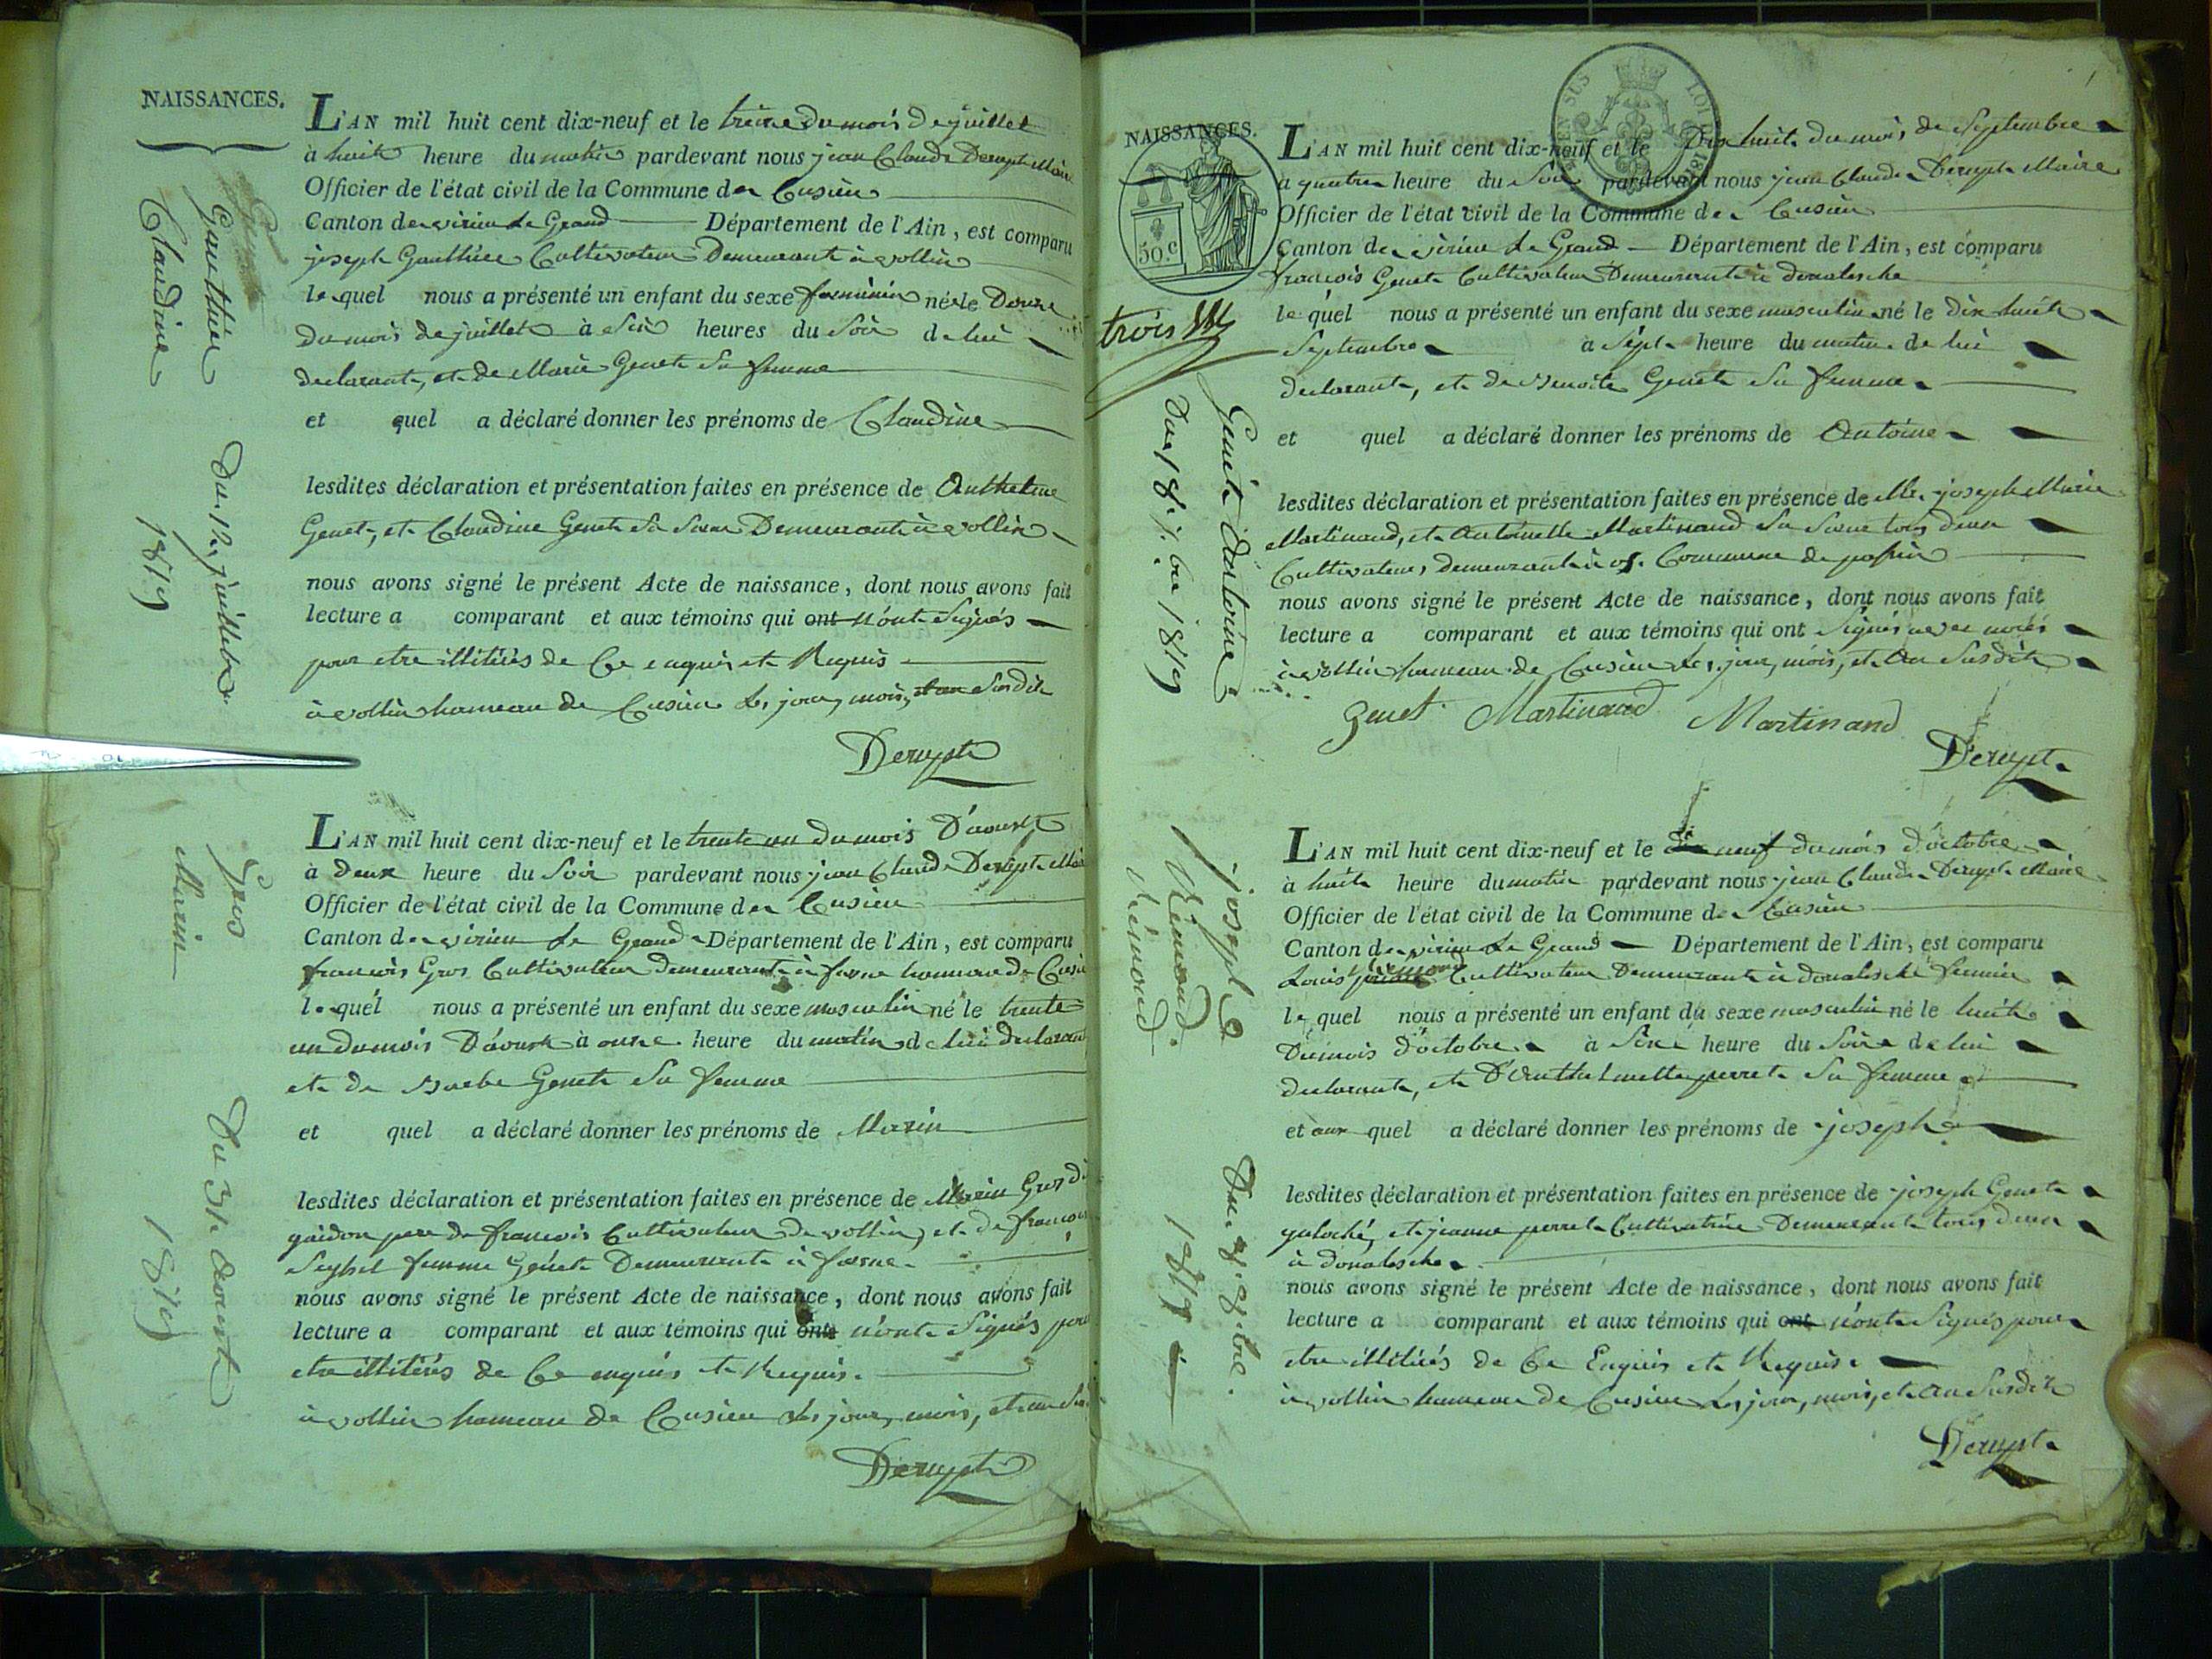 NAISSANCES.
Gauthier
Claudine
du 12 juillet
1819
L'AN mil huit cent dix-neuf et le treize du mois de juillet
à huit heure du matin pardevant nous jean Claude Derupt Maire
Officier de l'état civil de la Commune de Cusieu
Canton de virieu le Grand Département de l'Ain, est comparu
joseph Gauthier Cultivateur Demeurant à vollin
le quel nous a présenté un enfant du sexe feminin né le Douze
du mois de juillet à Six heures du Soir de lui
declarant, et de Marie Genet Sa femme
et quel a déclaré donner les prénoms de Claudine
lesdites déclaration et présentation faites en présence de Anthelme
Genet, et Claudine Genet Sa Sœur Demeurant à vollin
nous avons signé le présent Acte de naissance, dont nous avons fait
lecture a comparant et aux témoins qui ont n'ont Signés
pour etre illitérés de Ce enquis et Requis
à vollin hameau de Cusieu les jour, mois, et an Susdit
Derupt
Gros
Marin
Du 31 Aoust
1819
L'AN mil huit cent dix-neuf et le trente un du mois D'aoust
à deux heure du Soir pardevant nous jean Claude Derupt Maire
Officier de l'état civil de la Commune de Cusieu
Canton de virieu le Grand Département de l'Ain, est comparu
francois Gros Cultivateur demeurant à fosne hameau de Cusieu
le quel nous a présenté un enfant du sexe masculin né le trente
un du mois D'aoust à onze heure du matin de lui declarant
et de Genet Sa femme
et quel a déclaré donner les prénoms de Marin
lesdites déclaration et présentation faites en présence de Marin Gros di
guidon pere de francois Cultivateur de vollin, et de
femme Genet Demeurant à fosne
nous avons signé le présent Acte de naissance, dont nous avons fait
lecture a comparant et aux témoins qui ont n'ont Signés pour
etre illitérés de Ce enquis et Requis.
à vollin hameau de Cusieu les jour, mois, et an
Derupt
NAISSANCES.
50.c
trois
Genet Antoine
du 18 7.bre 1819
L'AN mil huit cent dix-neuf et le Dix huit du mois de Septembre
a quatre heure du Soir pardevant nous jean Claude Derupt Maire
Officier de l'état civil de la Commune de Cusieu
Canton de virieu le Grand Département de l'Ain, est comparu
francois Genet Cultivateur Demeurant à donalesche
le quel nous a présenté un enfant du sexe masculin né le dix huit
Septembre à Sept heure du matin de lui
declarant, et de Benoite Genet Sa femme
et quel a déclaré donner les prénoms de Antoine
lesdites déclaration et présentation faites en présence de Mr joseph Marie
Martinand, et Antoinette Martinand Sa Sœur tous deux
Cultivateurs demeurant à Commune de
nous avons signé le présent Acte de naissance, dont nous avons fait
lecture a comparant et aux témoins qui ont Signés avec nous
à vollin hameau de Cusieu les jour, mois, et An Susdit
Genet Martinand Martinand
Derupt
joseph
Rémond.
Rémond
Du 8.bre.
1819
L'AN mil huit cent dix-neuf et le neuf du mois d'octobre
à huit heure du matin pardevant nous jean Claude Derupt Maire
Officier de l'état civil de la Commune de Cusieu
Canton de virieu le Grand Département de l'Ain, est comparu
Louis Cultivateur Demeurant à donalesche
le quel nous a présenté un enfant du sexe masculin né le huit
Dumois d'octobre à Sixe heure du Soir de lui
declarant, et D'Anthelmette perret Sa femme
et aux quel a déclaré donner les prénoms de joseph
lesdites déclaration et présentation faites en présence de joseph Genet
galoché, et jeanne perret Cultivatrice Demeurant tous deux
à donalesche
nous avons signé le présent Acte de naissance, dont nous avons fait
lecture a comparant et aux témoins qui ont n'ont Signés pour
etre illitérés de Ce Enquis et Requis
à vollin hameau de Cusieu les jour, mois, et An Susdit
Derupt